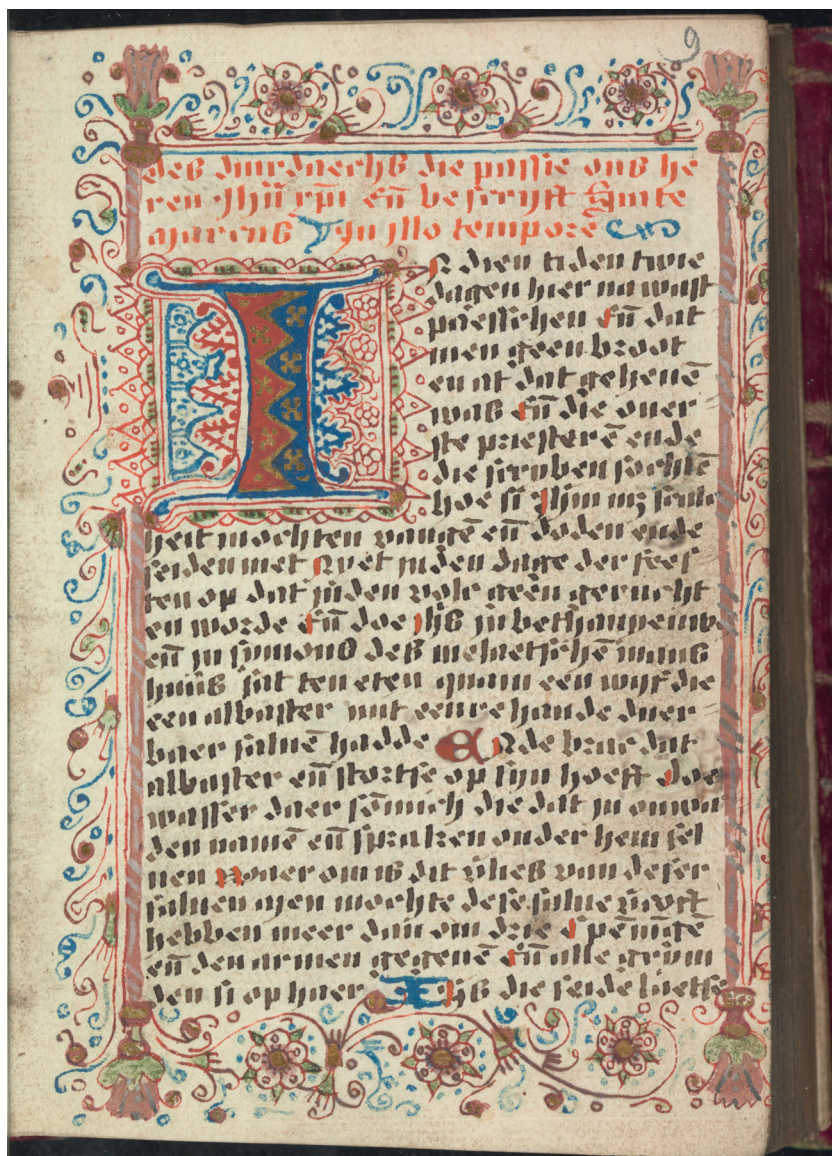 9
des dinrdaechs die passie ons he
ren jhū xpī eñ bescrijft Sinte
marcus In illo tempore
N dien tiden twie
dagen hier na wast
paesschen eñ dat
men geen broot
en at dat geheuē
was eñ die ouer
ste priesterē ende
die scryben sochtē
hoe si jhm mz scalc
heit mochten vangē eñ doden ende
seiden met Nyet in den dage der fees
ten op dat in den volc geen gerucht
en worde eñ doe jhs in bethanpen was
eñ in symons des melaetschē mans
huus sat ten eten quam een wijf die
een albaster mit eenre hande duer
baer saluē hadde Ende brac dat
albaster eñ stortse op sijn hoeft doe
wasser daer sōmich die dat in onwar
den namē eñ spraken onder hem sel
uen Waer om is dit vlies van deser
saluen men mochte dese salue v̄coft
hebben meer dan om drie c pēnigē
eñ den armen gegeuē eñ alle grijm
den si op haer Jhs die seide laetse